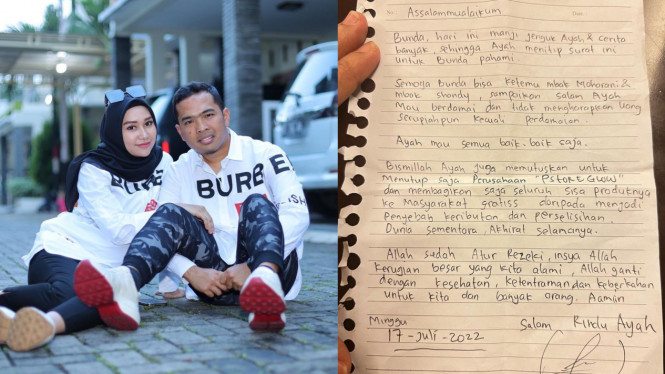 BURBE
BURBE
-ISH
Assalommualaikum
Bunda, hari ini manji jenguk Ayah & cerita
banyak, sehingga Ayah menitip surat ini
untuk Bunda pahami.
Semoga Bunda bisa ketemu mbak Maharani &
Mbak Shandy, sampaikan salam Ayah
Mau berdamai dan tidak mengharapkan Uang
serupiahpun kecuali perdamaian.
Ayah mau semua baik-baik saja.
Bismillah Ayah juga memutuskan untuk
Menutup saja Perusahaan "PSTORE GLOW"
dan membagikan saja seluruh sisa produknya
ke Masyarakat gratiss daripada menjadi
Penyebab keributan dan perselisihan.
Dunia sementara, Akhirat selamanya.
Allah sudah Atur Rezeki, insya Allah
kerugian besar yang kita alami, Allah ganti
dengan kesehatan, ketentraman dan keberkahan
untuk kita dan banyak orang. Aamiin
Minggu Salam Rindu Ayah
17-Juli-2022